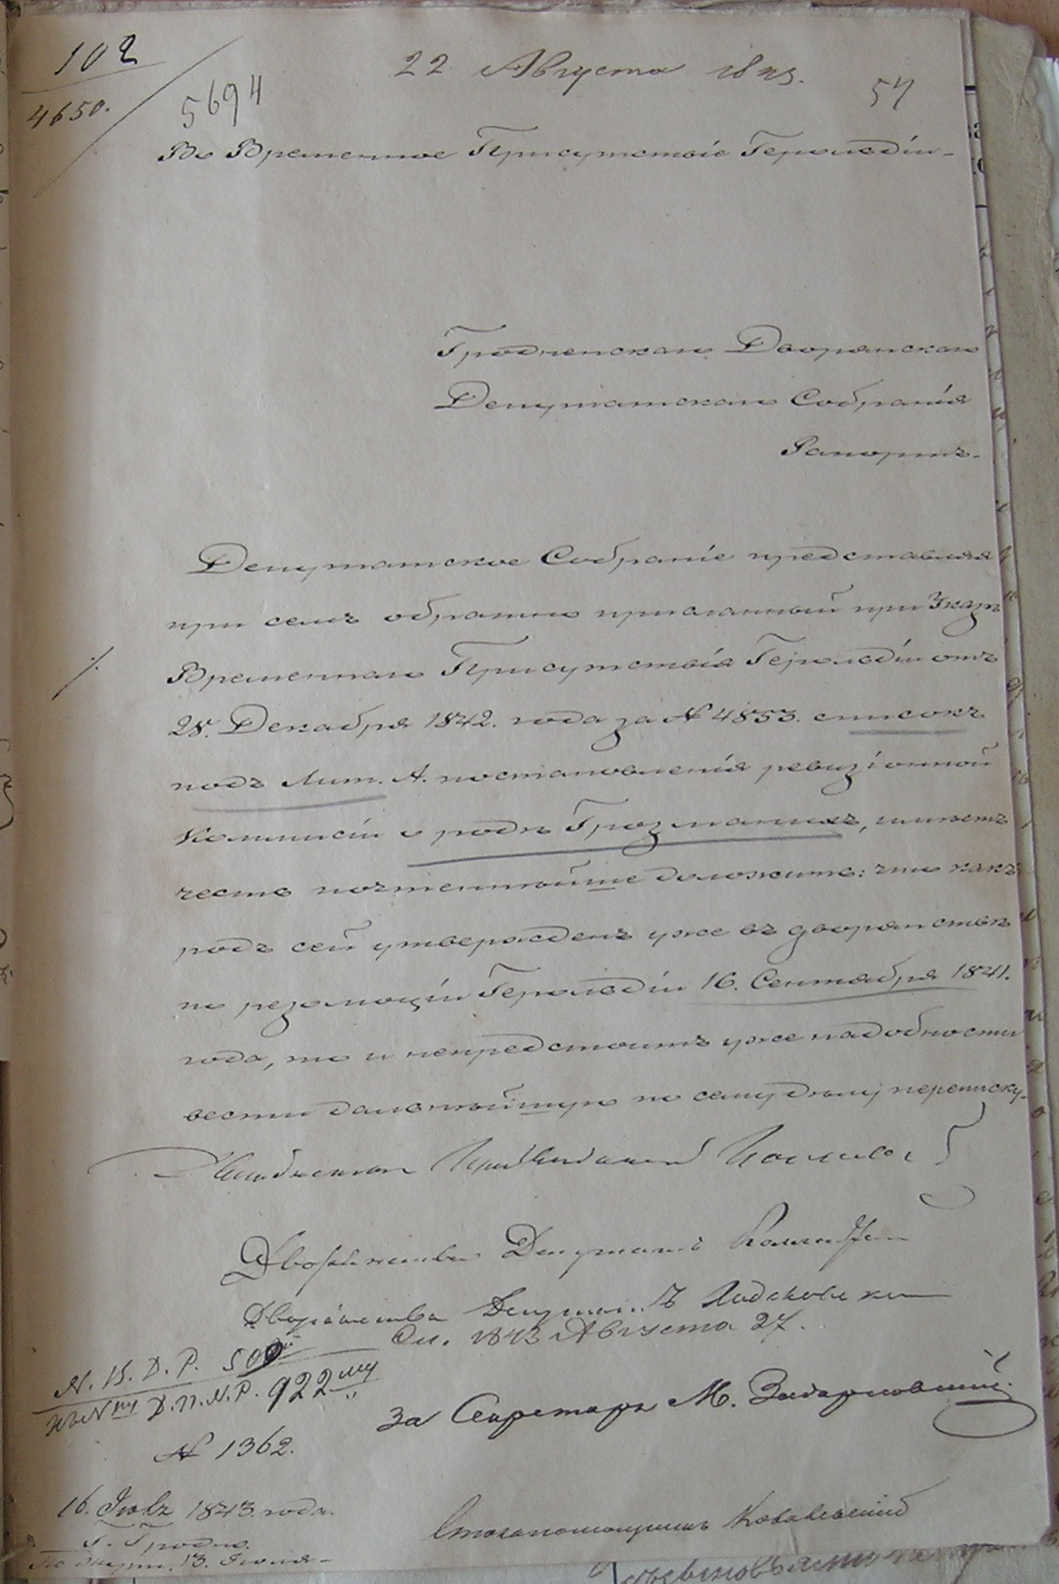 102
4650.
5694
22 Августа 1843.
57
Во Временное Присутствіе Герольдіи
Гродненскаго Дворянскаго
Депутатскаго Собранія
Рапортъ.
Депутатское Собраніе представляя
при семъ обратно присланный при Указѣ
Временнаго Присутствія Герольдіи отъ
28. Декабря 1842. года за № 4853. списокъ
подъ Лит. А. постановленія ревизіонной
Коммисіи о родѣ Грозмановъ, имѣетъ
честь почтеннѣйше доложить: что какъ
родъ сей утвержденъ уже въ дворянствѣ
по резолюціи Герольдіи 16. Сентября 1841.
года, то и непредстоитъ уже надобности
вести дальнѣйшую по сему дѣлу переписку.
Дворянства Депутатъ
Дворянства Депутатъ
Сл. 1843 Августа 27.
N. B. D. P. 500
D. П. N. P. 922
За Секретаря М.
№ 1362.
16. Іюля 1843. года.
Г. Гродно.
13. Іюля
Столоначальникъ Ковалевскій